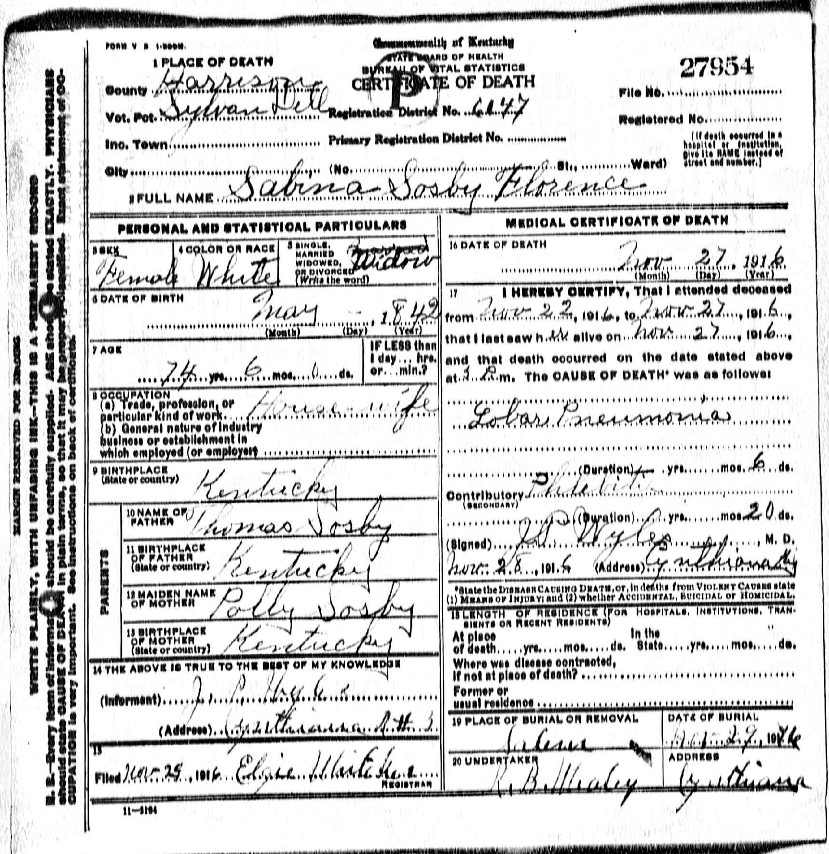 FORM V S 1-500M.
Commonwealth of Kentucky
STATE BOARD OF HEALTH
BUREAU OF VITAL STATISTICS
CERTIFICATE OF DEATH
27954
File No.
1 PLACE OF DEATH
County Harrison
Vot. Pct. Sylvan Dell Registration District No. 6147
Registered No.
Inc. Town Primary Registration District No.
[If death occurred in a hospital or institution, give its NAME instead of street and number.]
City (No. St., Ward)
2 FULL NAME Sabina Sosby Florence
PERSONAL AND STATISTICAL PARTICULARS
3 SEX Female
4 COLOR OR RACE White
5 SINGLE, MARRIED WIDOWED, OR DIVORCED (Write the word) Widow
6 DATE OF BIRTH
May - 1842
(Month) (Day) (Year)
7 AGE
74 yrs. 6 mos. 0 ds.
IF LESS than 1 day... hrs. or... min.?
8 OCCUPATION
(a) Trade, profession, or particular kind of work House wife
(b) General nature of industry business or establishment in which employed (or employer)
9 BIRTHPLACE
(State or country)
Kentucky
PARENTS
10 NAME OF FATHER Thomas Sosby
11 BIRTHPLACE OF FATHER (State or country) Kentucky
12 MAIDEN NAME OF MOTHER Polly Sosby
13 BIRTHPLACE OF MOTHER (State or country) Kentucky
14 THE ABOVE IS TRUE TO THE BEST OF MY KNOWLEDGE
(Informent) J.
(Address) Cynthiana
15
Filed Nov 25, 1916 Elgie
REGISTRAR
11-3184
MEDICAL CERTIFICATE OF DEATH
16 DATE OF DEATH
Nov 27, 1916
(Month) (Day) (Year)
17 I HEREBY CERTIFY, That I attended deceased
from Nov 22, 1916, to Nov 27, 1916,
that I last saw her alive on Nov 27, 1916,
and that death occurred on the date stated above
at 3 P.m. The CAUSE OF DEATH* was as follows:
Lobar Pneumonia
(Duration) yrs. mos. 6 ds.
Contributory
(SECONDARY)
(Duration) yrs. mos. 20 ds.
(Signed) Wyles, M. D.
Nov. 28, 1916 (Address) Cynthiana Ky
*State the DISEASE CAUSING DEATH, or, in deaths from VIOLENT CAUSES state
(1) MEANS OF INJURY; and (2) whether ACCIDENTAL, SUICIDAL or HOMICIDAL.
18 LENGTH OF RESIDENCE (FOR HOSPITALS, INSTITUTIONS, TRANSIENTS OR RECENT RESIDENTS)
At place of death yrs. mos. ds. In the State yrs. mos. ds.
Where was disease contracted, if not at place of death?
Former or usual residence
19 PLACE OF BURIAL OR REMOVAL
Salem
DATE OF BURIAL
Nov 29, 1916
20 UNDERTAKER
R. B. Whaley
ADDRESS
Cynthiana
MARGIN RESERVED FOR BINDING
WRITE PLAINLY, WITH UNFADING INK—THIS IS A PERMANENT RECORD
N. B.—Every item of information should be carefully supplied. AGE should be stated EXACTLY. PHYSICIANS
should state CAUSE OF DEATH in plain terms, so that it may be properly classified. Exact statement of OC-
CUPATION is very important. See instructions on back of certificate.